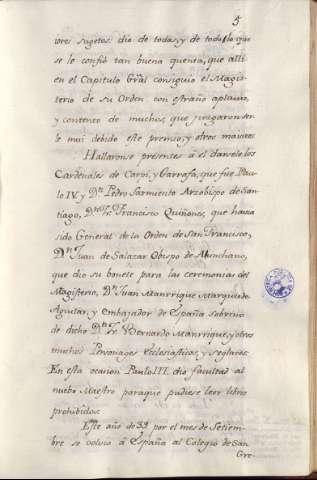 5
ores sugetos: dio de todas, y de todo lo que
se le confió tan buena quenta, que alli
en el Capitulo Gral consiguio el Magis-
terio de su Orden con estraño aplauso,
y contento de muchos, que juzgaron ser
le mui debido este premio, y otros maiores
Hallaronse presentes á el darsele los
Cardenales de Carpi, y Garrafa, que fue Pau-
lo IV. y Dn. Pedro Sarmiento Arzobispo de San-
tiago, Fr. Francisco Quiñones, que havia
sido General de la Orden de San Francisco,
Dn. Juan de Salazar Obispo de
que dio su bonete para las ceremonias del
Magisterio, Dn. Juan Manrrique Marques de
Aguilar, y embajador de España sobrino
de dicho Fr. Bernardo Manrrique, y otros
muchos Personages Ecclesiasticos, y seglares.
En esta ocasion Paulo III. dio facultad al
nuebo Maestro paraque pudiese leer libros
prohibidos.
Este año de 39 por el mes de Setiem-
bre se volvio á España al Colegio de San
Gre-